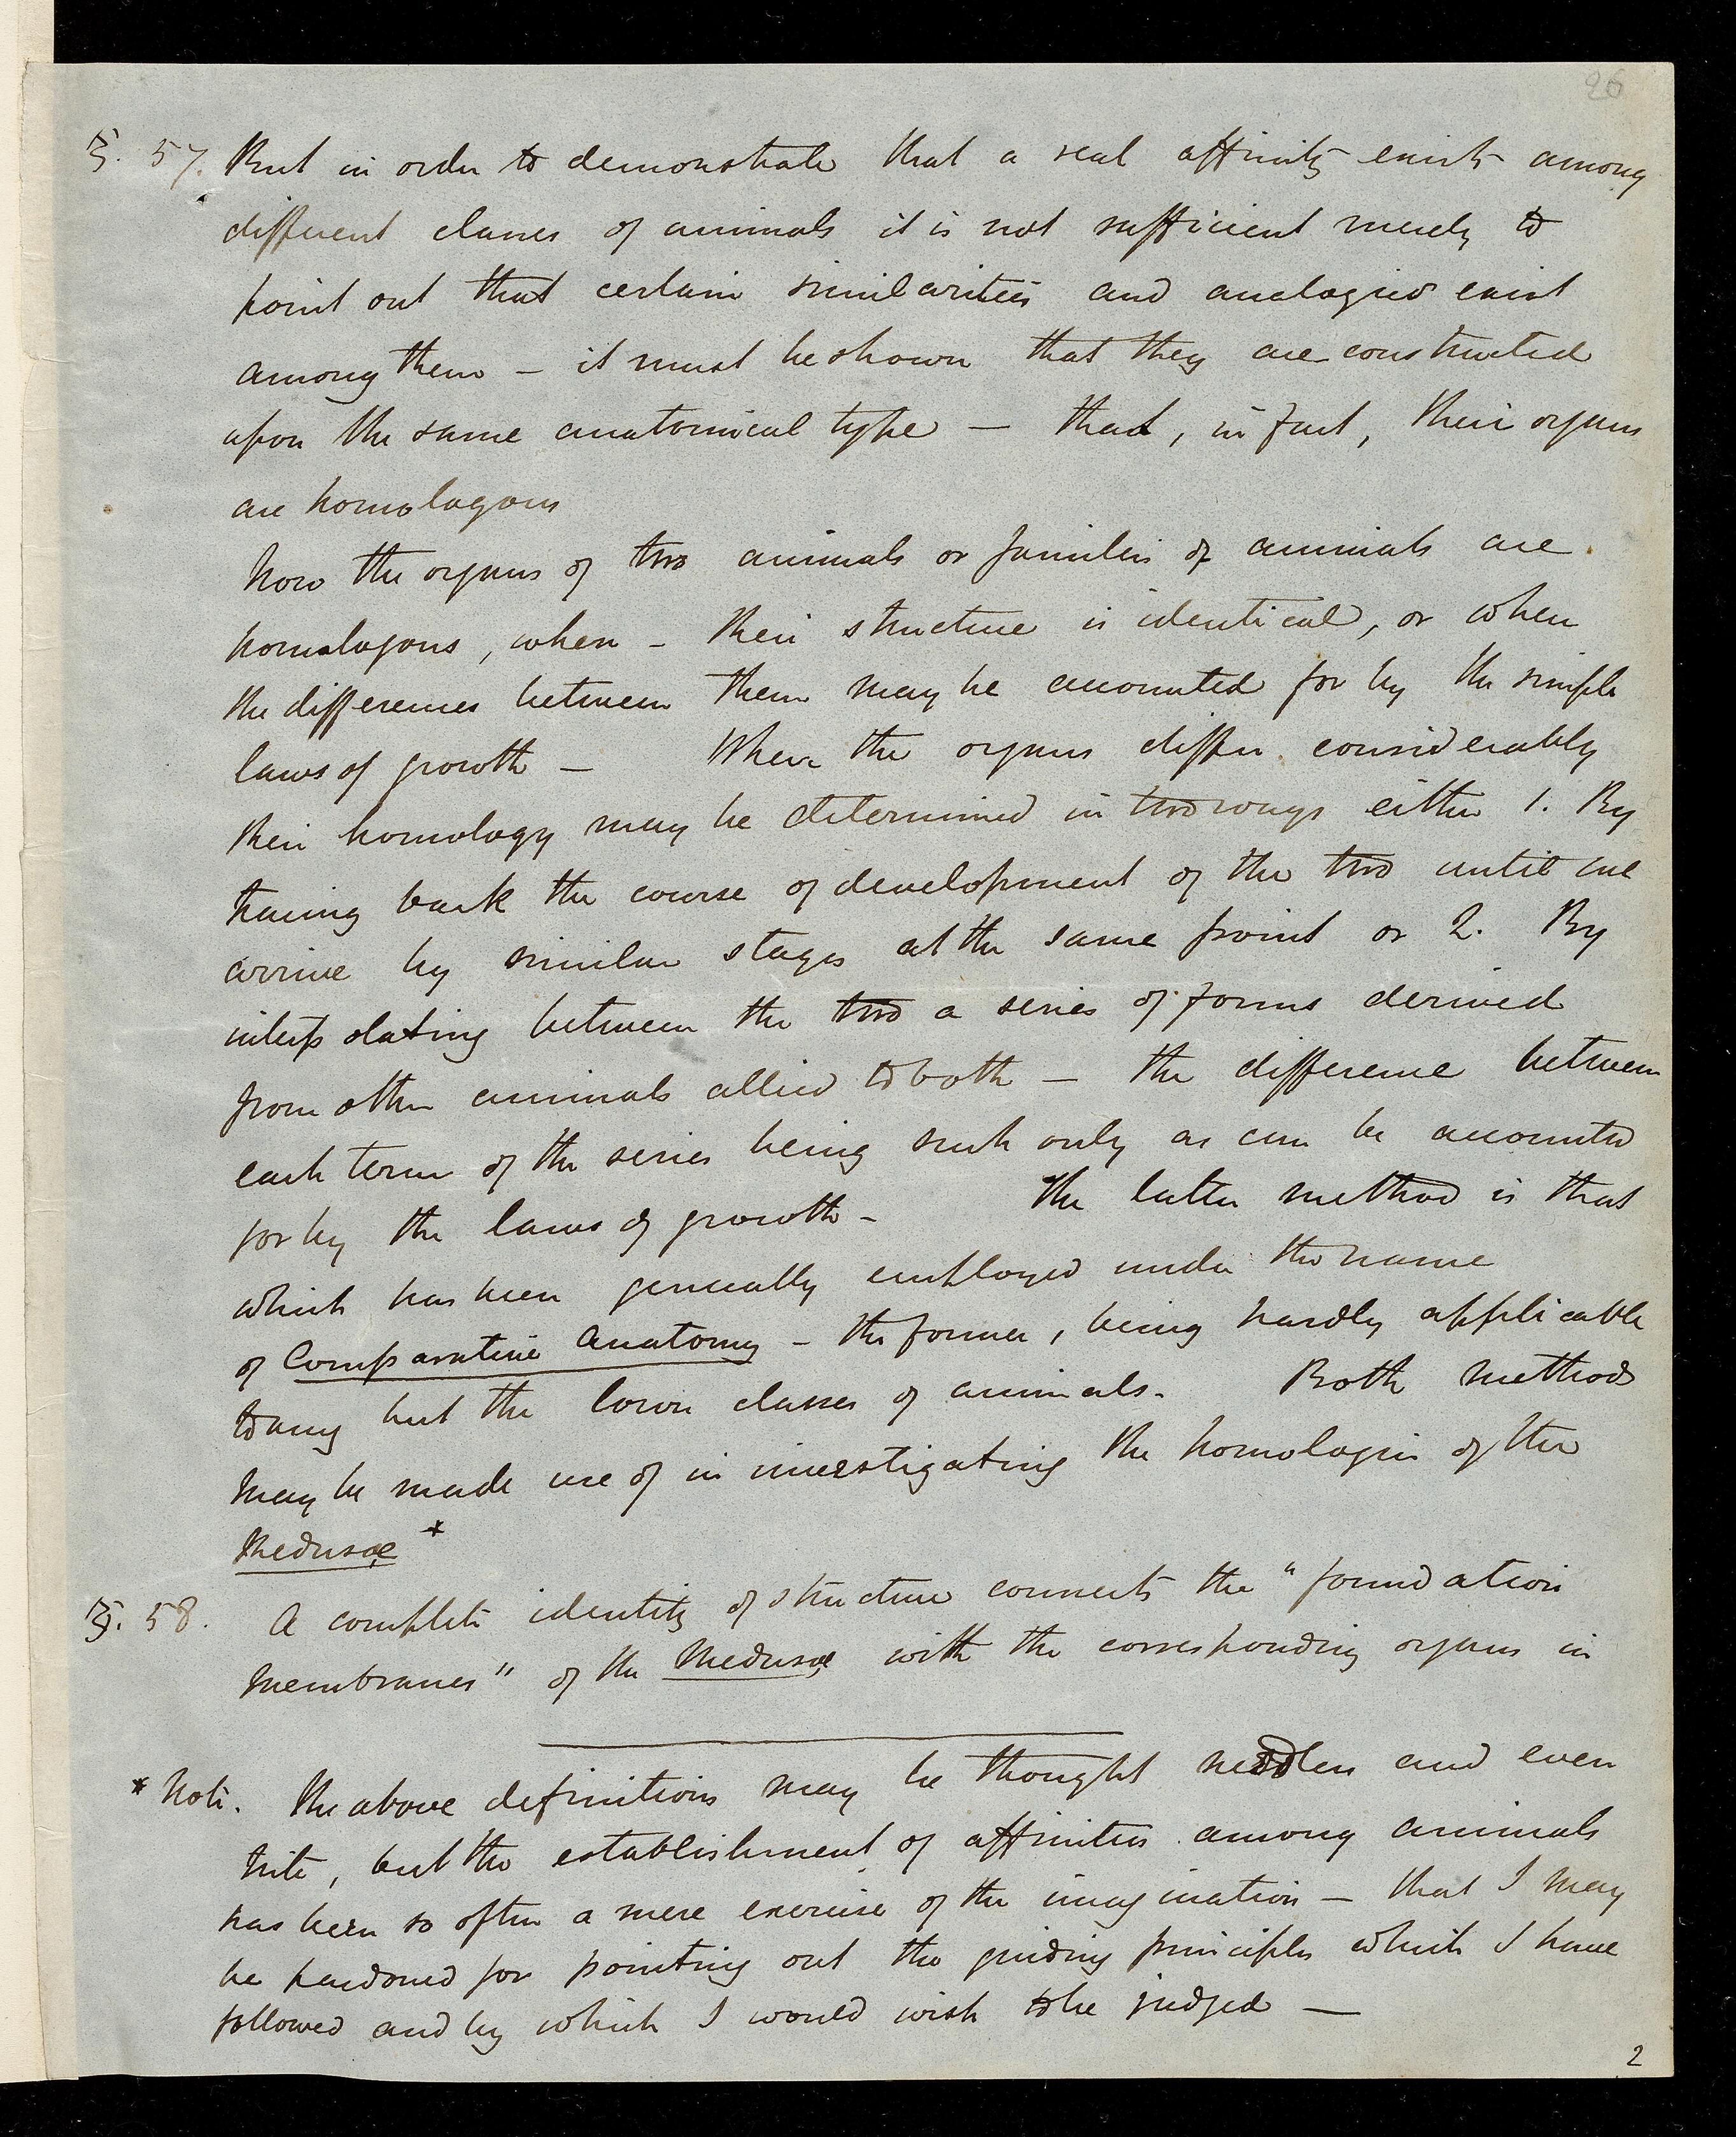 26
§. 57. But in order to demonstrate that a real affinity exists among
different classes of animals it is not sufficient merely to
point out that certain similarities and analogies exist
among them – it must be shown that they are constructed
upon the same anatomical type – that, in fact, their organs
are homologous
Now the organs of two animals or families of animals are
homologous, when – their structure is identical, or when
the differences between them may be accounted for by the simple
laws of growth – When the organs differ considerably
their homology may be determined in two ways either 1. By
tracing back the course of development of the two until we
arrive by similar stages at the same point or 2. By
interpolating between the two a series of forms derived
from other animals allied to both – the difference between
each term of the series being such only as can be accounted
for by the laws of growth – The latter method is that
which has been generally employed under the name
of Comparative Anatomy – the former, being hardly applicable
to any but the lower classes of animals. Both methods
may be made use of in investigating the homologies of the
Medusæ *
§. 58. A complete identity of structure connects the "foundation
membranes" of the Medusæ with the corresponding organs in
* Note. The above definitions may be thought needless and even
trite, but the establishment of affinities among animals
has been so often a mere exercise of the imagination – that I may
be pardoned for pointing out the guiding principles which I have
followed and by which I would wish to be judged –
2